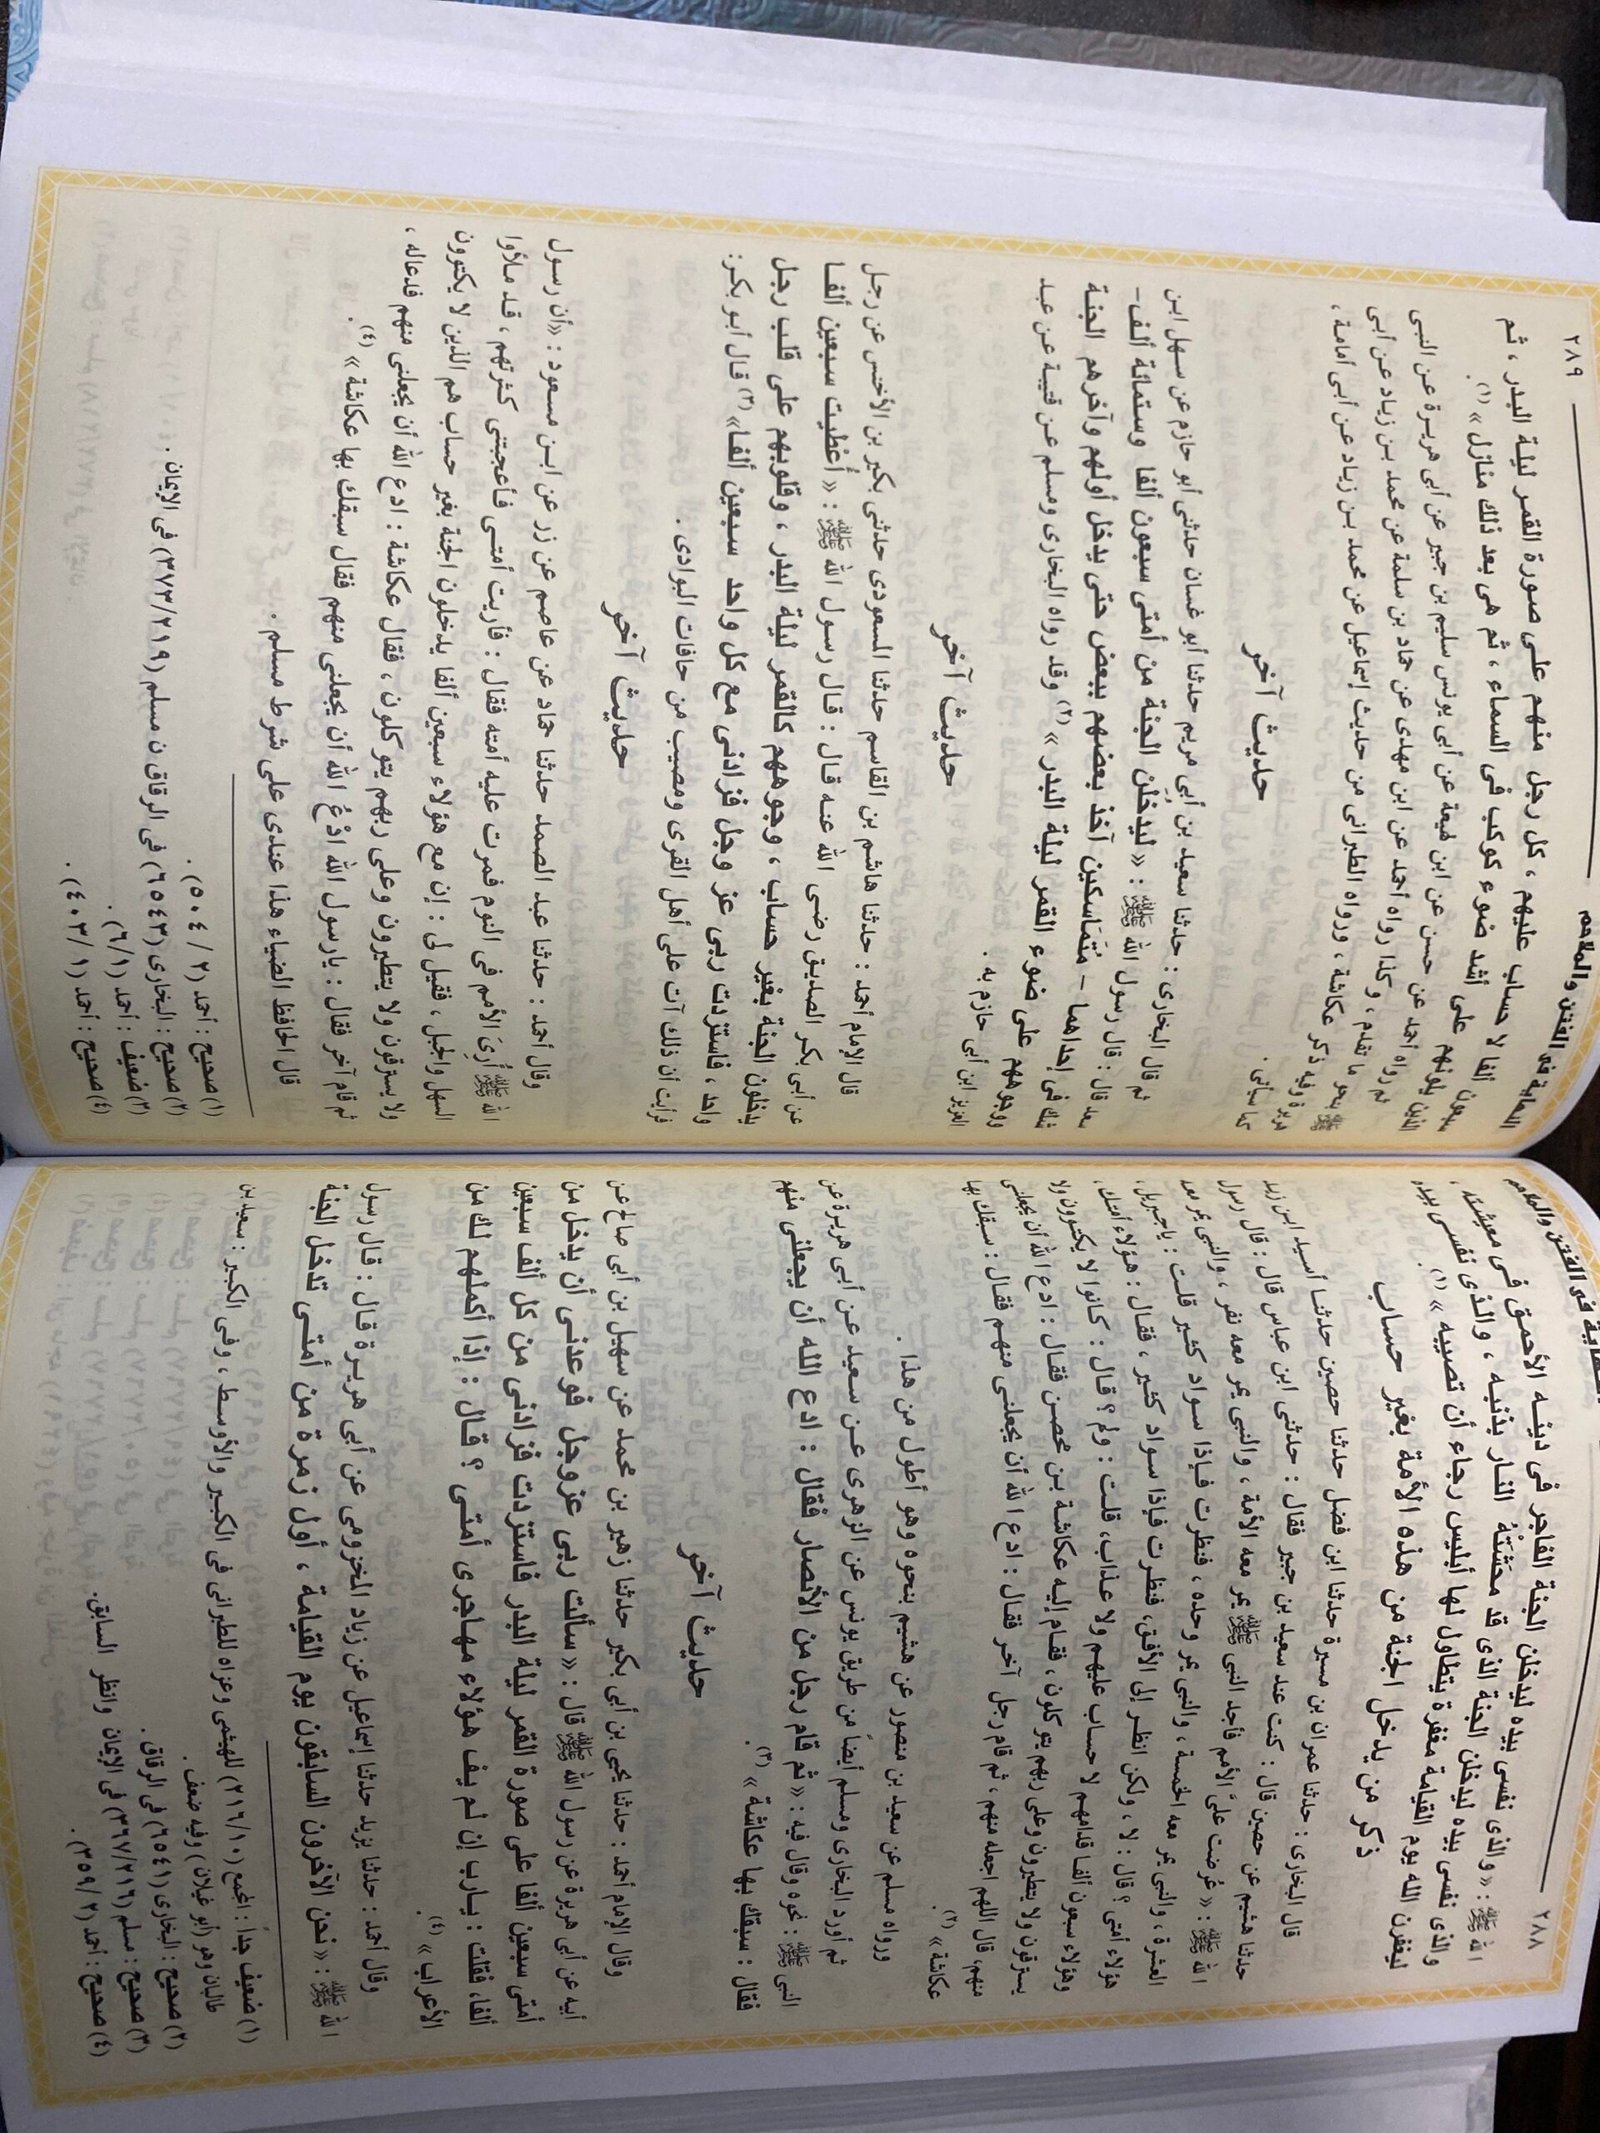 ٢٨٨
النهاية فى الفتن والملاحم
الله ﷺ : «والذى نفسى بيده ليدخلن الجنة الفاجر فى دينه الأحمق فى معيشته ،
والذى نفسى بيده ليدخلن الجنة الذى قد محَشَتْهُ النار بذنبه ، والذى نفسى بيده
ليغفرن الله يوم القيامة مغفرة يتطاول لها أبليس رجاء أن تصيبه » (١) .
ذكر من يدخل الجنة من هذه الأمة بغير حساب
قال البخارى : حدثنا عمران بن ميسرة حدثنا ابن فضل حدثنا حصين حدثنا أسيد ابن زيد
حدثنا هشيم عن حصين قال : كنت عند سعيد بن جبير فقال : حدثنى ابن عباس قال : قال رسول
الله ﷺ : « عُرضت علىَّ الأمم فأجد النبى ﷺ يمر معه الأمة ، والنبى يمر معه نفر ، والنبى يمر معه
العشرة ، والنبى يمر معه الخمسة ، والنبى يمر وحده ، فنظرت فإذا سواد كثير قلت : ياجبريل،
هؤلاء أمتى ؟ قال : لا ، ولكن انظر إلى الأفق، فنظرت فإذا سواد كثير ، فقال : هؤلاء أمتك،
وهؤلاء سبعون ألفا قدامهم لا حساب عليهم ولا عذاب، قلت : ولم ؟ قال : كانوا لا يكتوون ولا
يسترقون ولا يتطيرون وعلى ربهم يتوكلون ، فقام إليه عكاشة بن محصن فقال : ادع الله أن يجعلنى
منهم، قال اللهم اجعله منهم ، ثم قام رجل آخر فقال : ادع الله أن يجعلنى منهم فقال : سبقك بها
عكاشة» (٢) .
ورواه مسلم عن سعيد بن منصور عن هشيم بنحوه وهو أطول من هذا .
ثم أورد البخارى ومسلم أيضاً من طريق يونس عن الزهرى عن سعيد عن أبى هريرة عن
النبى ﷺ : نحوه وقال فيه : «ثم قام رجل من الأنصار فقال : ادع الله أن يجعلنى منهم
فقال : سبقك بها عكاشة » (٣) .
حديث آخر
وقال الإمام أحمد : حدثنا يحيى بن أبى بكير حدثنا زهير بن محمد عن سهيل بن أبى صالح عن
أبيه عن أبى هريرة عن رسول الله ﷺ قال : « سألت ربى عز وجل فوعدنى أن يدخل من
أمتى سبعين ألفا على صورة القمر ليلة البدر فاستزدت فزادنى من كل ألف سبعين
ألفا، فقلت : يارب إن لم يف هؤلاء مهاجرى أمتى ؟ قال : إذا أكملهم لك من
الأعراب» (٤) .
وقال أحمد : حدثنا يزيد حدثنا إسماعيل عن زياد المخزومى عن أبى هريرة قال : قال رسول
الله ﷺ : « نحن الآخرون السابقون يوم القيامة ، أول زمرة من أمتى تدخل الجنة
(١) ضعيف جداً : المجمع (٢١٦/١٠) للهيثمى وعزاه للطبرانى فى الكبير والأوسط ، وفى الكبير : سعيد بن
طالبان وهو (أبو غيلان ) وفيه ضعف .
(٢) صحيح : البخارى (٦٥٤١) فى الرقاق .
(٣) صحيح : مسلم (٣٦٧/٢١٦) فى الإيمان وانظر السابق.
(٤) صحيح : أحمد (٢ /٣٥٩) .
النهاية فى الفتن والملاحم
٢٨٩
سبعون ألفا لا حساب عليهم ، كل رجل منهم على صورة القمر ليلة البدر ، ثم
الذين يلونهم على أشد ضوء كوكب فى السماء ، ثم هى بعد ذلك منازل » (١) .
ثم رواه أحمد عن حسن عن ابن لهيعة عن أبى يونس سليم بن جبير عن أبى هريرة عن النبى
ﷺ بنحو ما تقدم ، وكذا رواه أحمد عن ابن مهدى عن حماد بن سلمة عن محمد بن زياد عن أبى
هريرة وفيه ذكر عكاشة ، ورواه الطبرانى من حديث إسماعيل عن محمد بن زياد عن أبى أمامة ،
كما سيأتى .
حديث آخر
ثم قال البخارى : حدثنا سعيد بن أبى مريم حدثنا أبو غسان حدثنى أبو حازم عن سهل ابن
سعد قال : قال رسول الله ﷺ : « ليدخلن الجنة من أمتى سبعون ألفا وستمائة ألف-
شك فى إحداهما - مُتَماسكين آخذ بعضهم ببعض حتى يدخل أولهم وآخرهم الجنة
ووجوههم على ضوء القمر ليلة البدر » (٢) وقد رواه البخارى ومسلم عن قتيبة عن عبد
العزيز ابن أبى حازم به .
حديث آخر
قال الإمام أحمد : حدثنا هاشم بن القاسم حدثنا المسعودى حدثنى بكير بن الأخنس عن رجل
عن أبى بكر الصديق رضى الله عنه قال : قال رسول الله ﷺ : « أُعْطيت سبعين ألفا
يدخلون الجنة بغير حساب ، وجوههم كالقمر ليلة البدر ، وقلوبهم على قلب رجل
واحد ، فاستزدت ربى عز وجل فزادنى مع كل واحد سبعين ألفا» (٣) قال أبو بكر:
فرأيت أن ذلك آت على أهل القرى ومصيب من حافات البوادى .
حديث آخر
وقال أحمد : حدثنا عبد الصمد حدثنا حماد عن عاصم عن زر عن ابن مسعود : «أن رسول
الله ﷺ أُرِىَ الأمم فى النوم فمرت عليه أمته فقال : فأريت أمتى فأعجبتنى كثرتهم ، قد ملأوا
السهل والجبل ، فقيل لى : إن مع هؤلاء سبعين ألفا يدخلون الجنة بغير حساب هم الذين لا يكتوون
ولا يسترقون ولا يتطيرون وعلى ربهم يتوكلون ، فقال عكاشة : ادع الله أن يجعلنى منهم فدعاله ،
ثم قام آخر فقال : يارسول الله ادْعُ الله أن يجعلنى منهم فقال سبقك بها عكاشة » (٤) .
قال الحافظ الضياء هذا عندى على شرط مسلم .
(١) صحيح : أحمد (٢ / ٥٠٤) .
(٢) صحيح : البخارى (٦٥٤٣) فى الرقاق ن مسلم (٣٧٣/٢١٩) فى الإيمان .
(٣) ضعيف : أحمد (٦/١) .
(٤) صحيح : أحمد (١ /٤٠٣) .